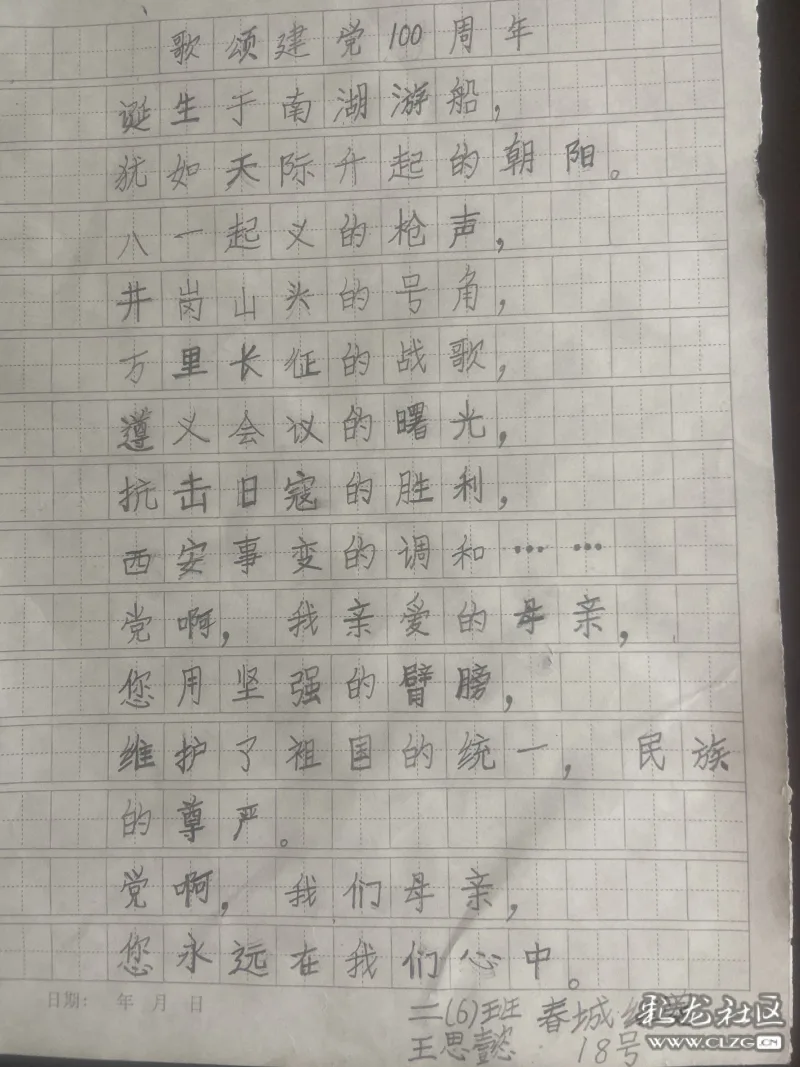 歌颂建党100周年
诞生于南湖游船，
犹如天际升起的朝阳。
八一起义的枪声，
井岗山头的号角，
万里长征的战歌，
遵义会议的曙光，
抗击日寇的胜利，
西安事变的调和……
党啊，我亲爱的母亲，
您用坚强的臂膀，
维护了祖国的统一，民族
的尊严。
党啊，我们母亲，
您永远在我们心中。
日期： 年 月 日
二(6)班 春城
王思懿 18号
彩龙社区
WWW.CLZG.CN